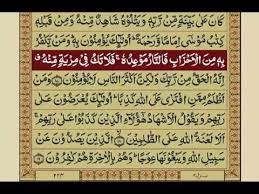 كَانَ عَلٰى بَيِّنَةٍ مِّنْ رَّبِّهٖ وَيَتْلُوْهُ شَاهِدٌ مِّنْهُ وَمِنْ قَبْلِهٖ
كِتٰبُ مُوْسٰٓى اِمَامًا وَّرَحْمَةً ؕ اُولٰٓئِكَ يُؤْمِنُوْنَ بِهٖ ؕ وَمَنْ يَّكْفُرْ
بِهٖ مِنَ الْاَحْزَابِ فَالنَّارُ مَوْعِدُهٗ ۚ فَلَا تَكُ فِيْ مِرْيَةٍ مِّنْهُ ۗ
اِنَّهُ الْحَقُّ مِنْ رَّبِّكَ وَلٰكِنَّ اَكْثَرَ النَّاسِ لَا يُؤْمِنُوْنَ ۝ وَ
مَنْ اَظْلَمُ مِمَّنِ افْتَرٰى عَلَى اللّٰهِ كَذِبًا ؕ اُولٰٓئِكَ يُعْرَضُوْنَ
عَلٰى رَبِّهِمْ وَيَقُوْلُ الْاَشْهَادُ هٰٓؤُلَآءِ الَّذِيْنَ كَذَبُوْا عَلٰى رَبِّهِمْ ۚ
اَلَا لَعْنَةُ اللّٰهِ عَلَى الظّٰلِمِيْنَ ۝ الَّذِيْنَ يَصُدُّوْنَ عَنْ
سَبِيْلِ اللّٰهِ وَيَبْغُوْنَهَا عِوَجًا ؕ وَهُمْ بِالْاٰخِرَةِ هُمْ كٰفِرُوْنَ
۲۲۳